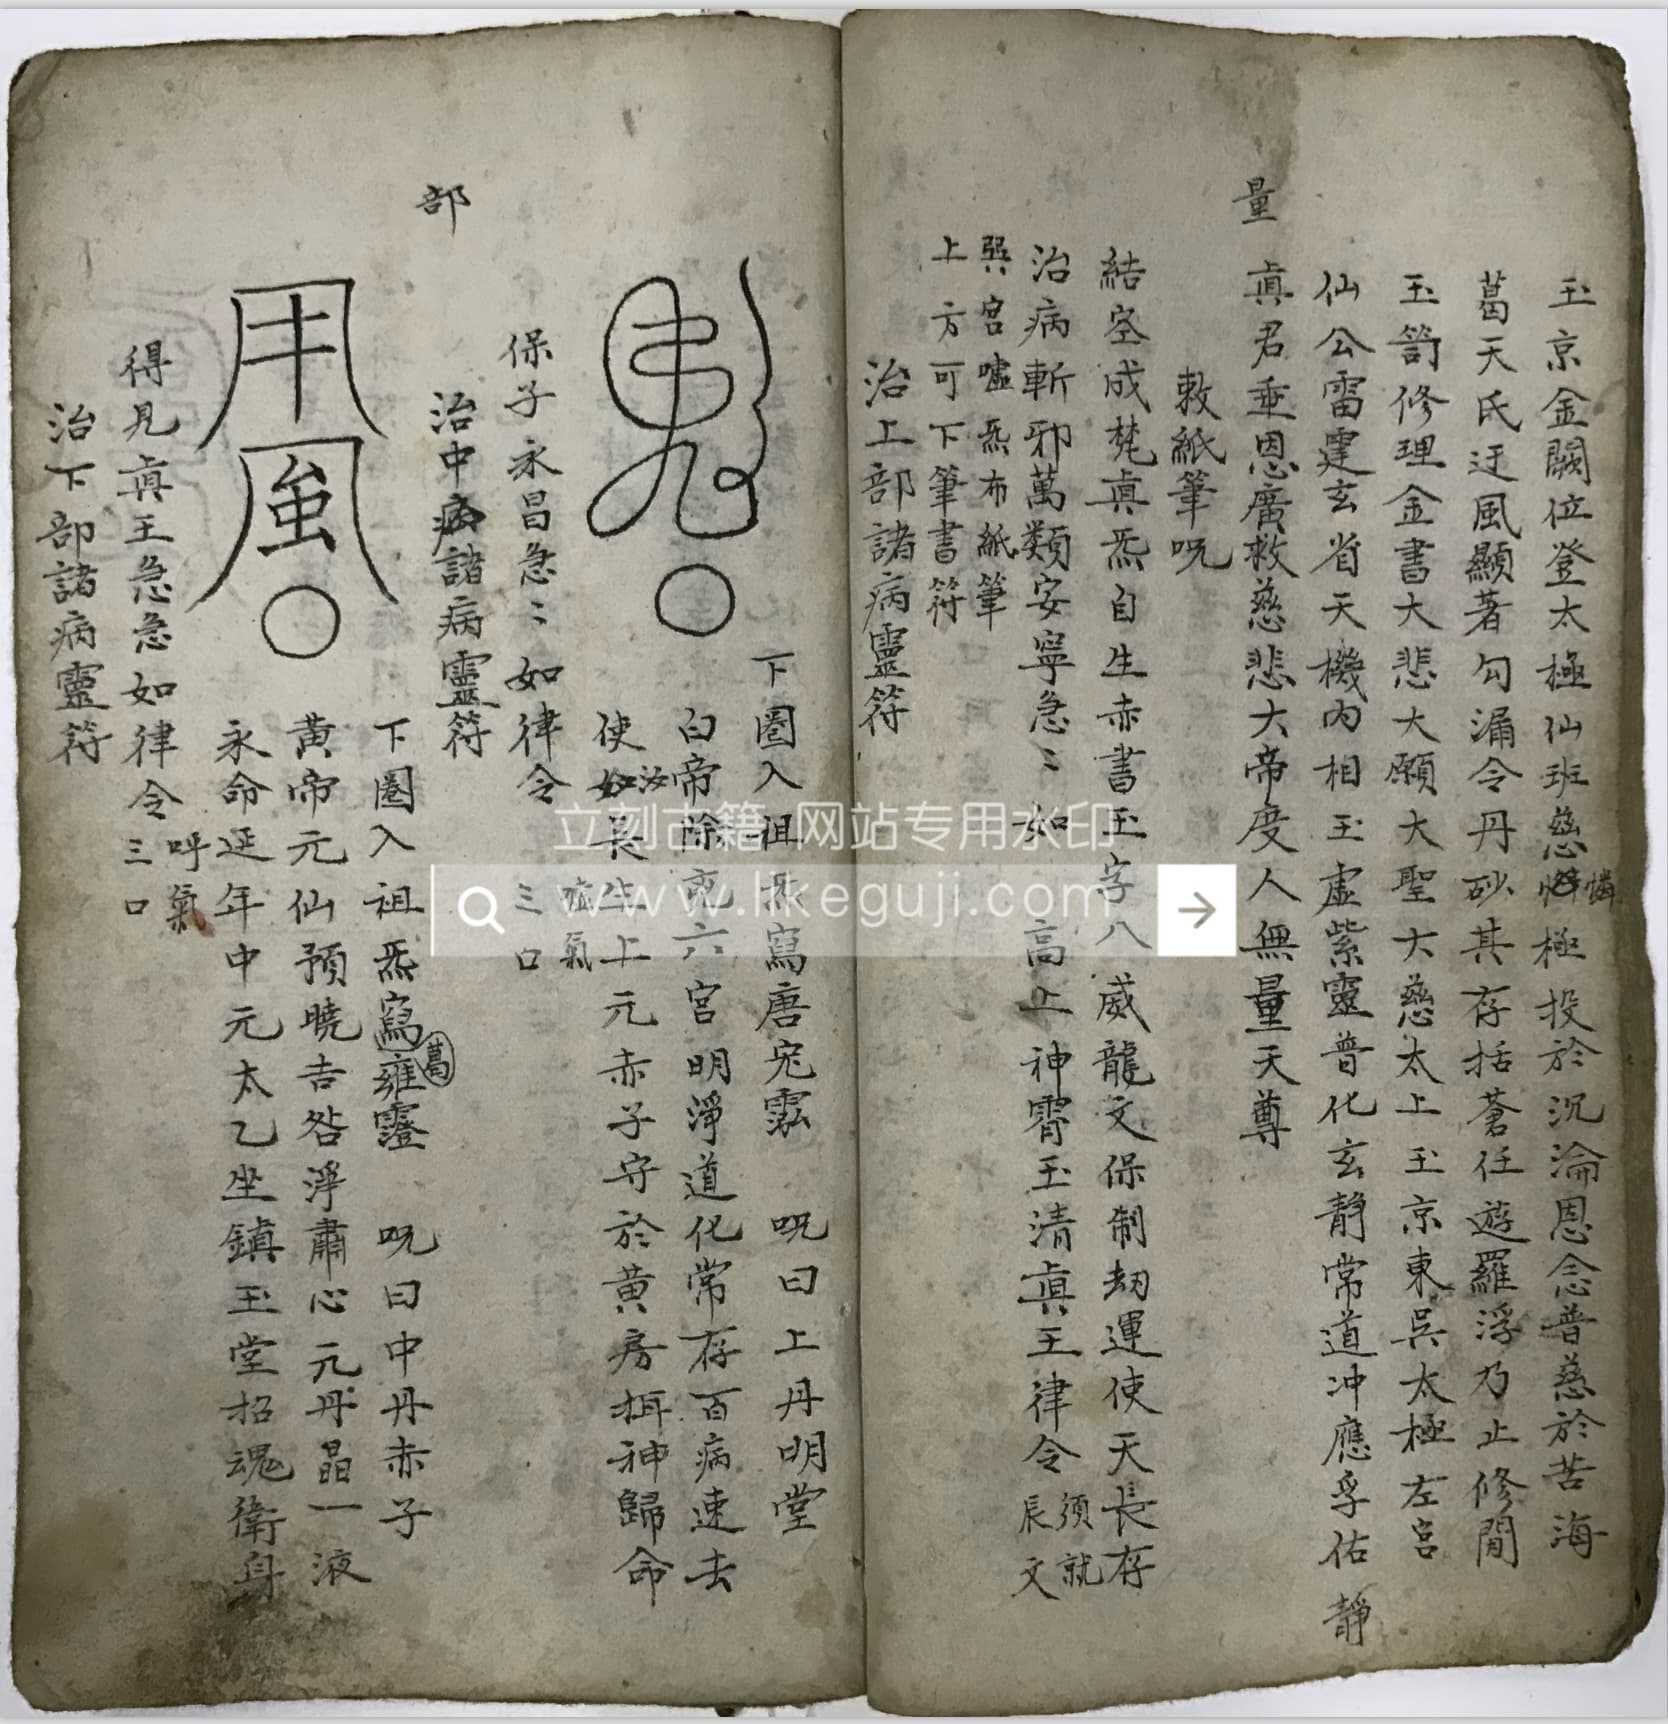 玉京金闕位登太極仙班慈憐極投於沉淪恩念普慈於苦海
葛天氏迂風顯著勾漏令丹砂其存括蒼任遊羅浮乃止修閒
玉笥修理金書大悲大願大聖大慈太上玉京東吳太極左宮
仙公雷霆玄省天機內相玉虛紫靈普化玄靜常道冲應孚佑
靜
量
真君垂恩廣救慈悲大帝度人無量天尊
敕紙筆呪
結空成梵真炁自生赤書玉字八威龍文保制劫運使天長存
治病斬邪萬類安寧急〻如 高上神霄玉清真王律令
須就
辰文
巽宮噓炁布紙筆
上方可下筆書符
治上部諸病靈符
下圈入祖炁寫唐宛 呪曰上丹明堂
白帝除 六宮明淨道化常存百病速去
使汝長生上元赤子守於黃房 神歸命
保子永昌急〻如律令
噓氣
三口
部
治中病諸病靈符
下圈入祖炁寫雍靈 呪曰中丹赤子
葛
黃帝元仙預曉吉咎淨肅心元丹晶一液
永命延年中元太乙坐鎮玉堂招魂衛身
得見真王急急如律令
呼氣
三口
治下部諸病靈符
立刻古籍 网站专用水印
www.lkeguji.com